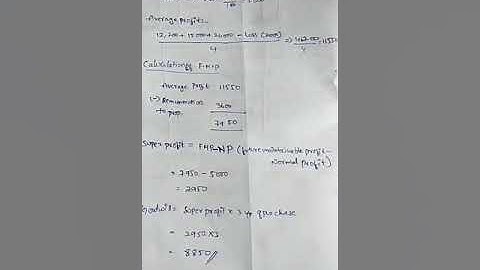 100
Average profit:-
12,200 + 15000 + 26000 - Loss (7000) ⇒ 46200 = 11550
4 4
Calculation of F.M.P
Average profit 11550
(-) Remuneration 3600
to prop. 7950
Super profit = FMP-NP (future maintainable profit-
Normal profit)
= 7950 - 5000
= 2950
Goodwill = Super profit x 3 yr purchase
= 2950 x 3
= 8850//